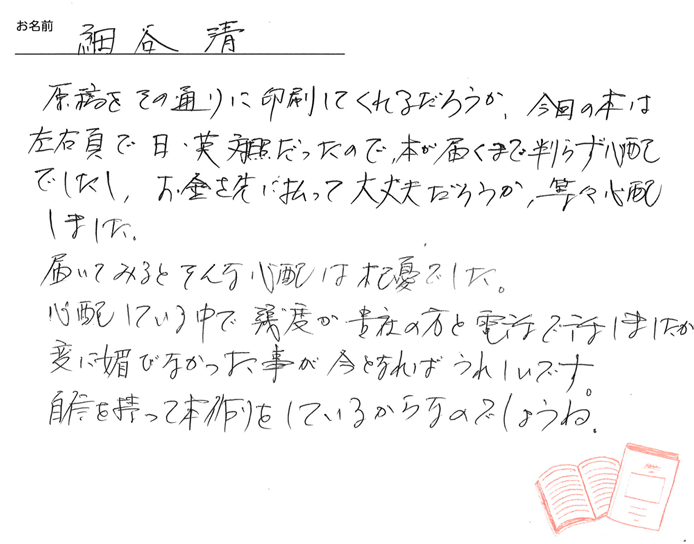 お名前 細谷 清
原稿をその通りに印刷してくれるだろうか、今回の本は
左右頁で日・英対照だったので、本が届くまで判らず心配
でしたし、お金を先に払って大丈夫だろうか、等々心配
しました。
届いてみるとそんな心配は杞憂でした。
心配している中で幾度か貴社の方と電話で話しましたが
変に媚びなかった事が今となればうれしいです。
自信を持って本作りをしているからなのでしょうね。